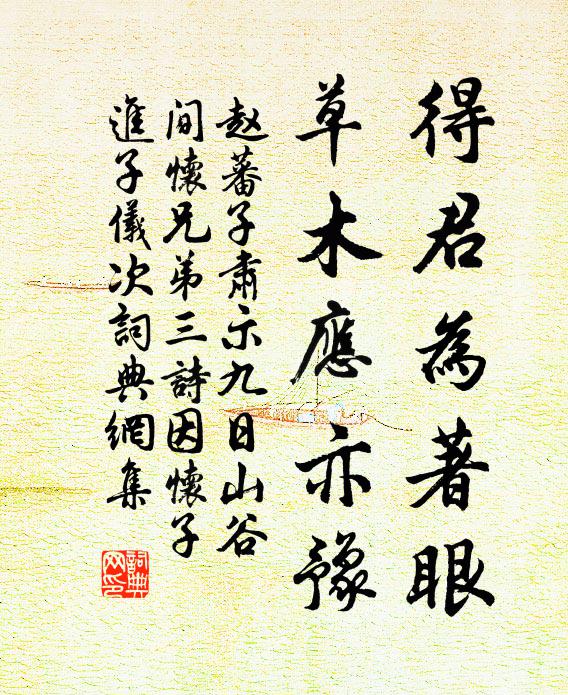 得君為著眼
草木應亦豫
赵蕃子肅示九日山谷
间懷兄弟三詩因懷子
進子儀次詞典網集
詞典网印